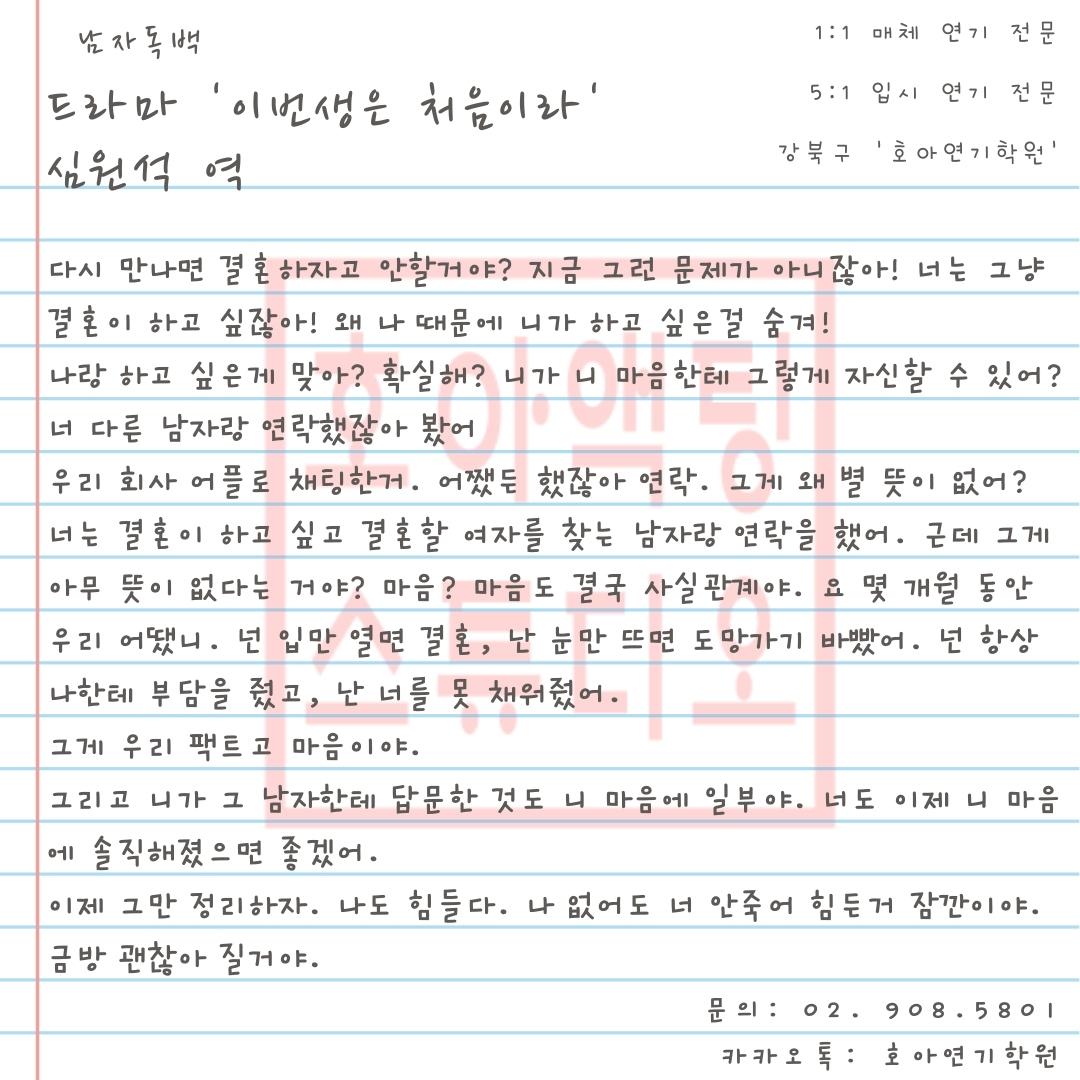 남자독백
드라마 '이번생은 처음이라'
심원석 역
1:1 매체 연기 전문
5:1 입시 연기 전문
강북구 '호아연기학원'
다시 만나면 결혼하자고 안할거야? 지금 그런 문제가 아니잖아! 너는 그냥
결혼이 하고 싶잖아! 왜 나 때문에 니가 하고 싶은걸 숨겨!
나랑 하고 싶은게 맞아? 확실해? 니가 니 마음한테 그렇게 자신할 수 있어?
너 다른 남자랑 연락했잖아 봤어
우리 회사 어플로 채팅한거. 어쨌든 했잖아 연락. 그게 왜 별 뜻이 없어?
너는 결혼이 하고 싶고 결혼할 여자를 찾는 남자랑 연락을 했어. 근데 그게
아무 뜻이 없다는 거야? 마음? 마음도 결국 사실관계야. 요 몇 개월 동안
우리 어땠니. 넌 입만 열면 결혼, 난 눈만 뜨면 도망가기 바빴어. 넌 항상
나한테 부담을 줬고, 난 너를 못 채워줬어.
그게 우리 팩트고 마음이야.
그리고 니가 그 남자한테 답문한 것도 니 마음에 일부야. 너도 이제 니 마음
에 솔직해졌으면 좋겠어.
이제 그만 정리하자. 나도 힘들다. 나 없어도 너 안죽어 힘든거 잠깐이야.
금방 괜찮아 질거야.
호아액팅
스튜디오
문의: 02. 908.5801
카카오톡: 호아연기학원